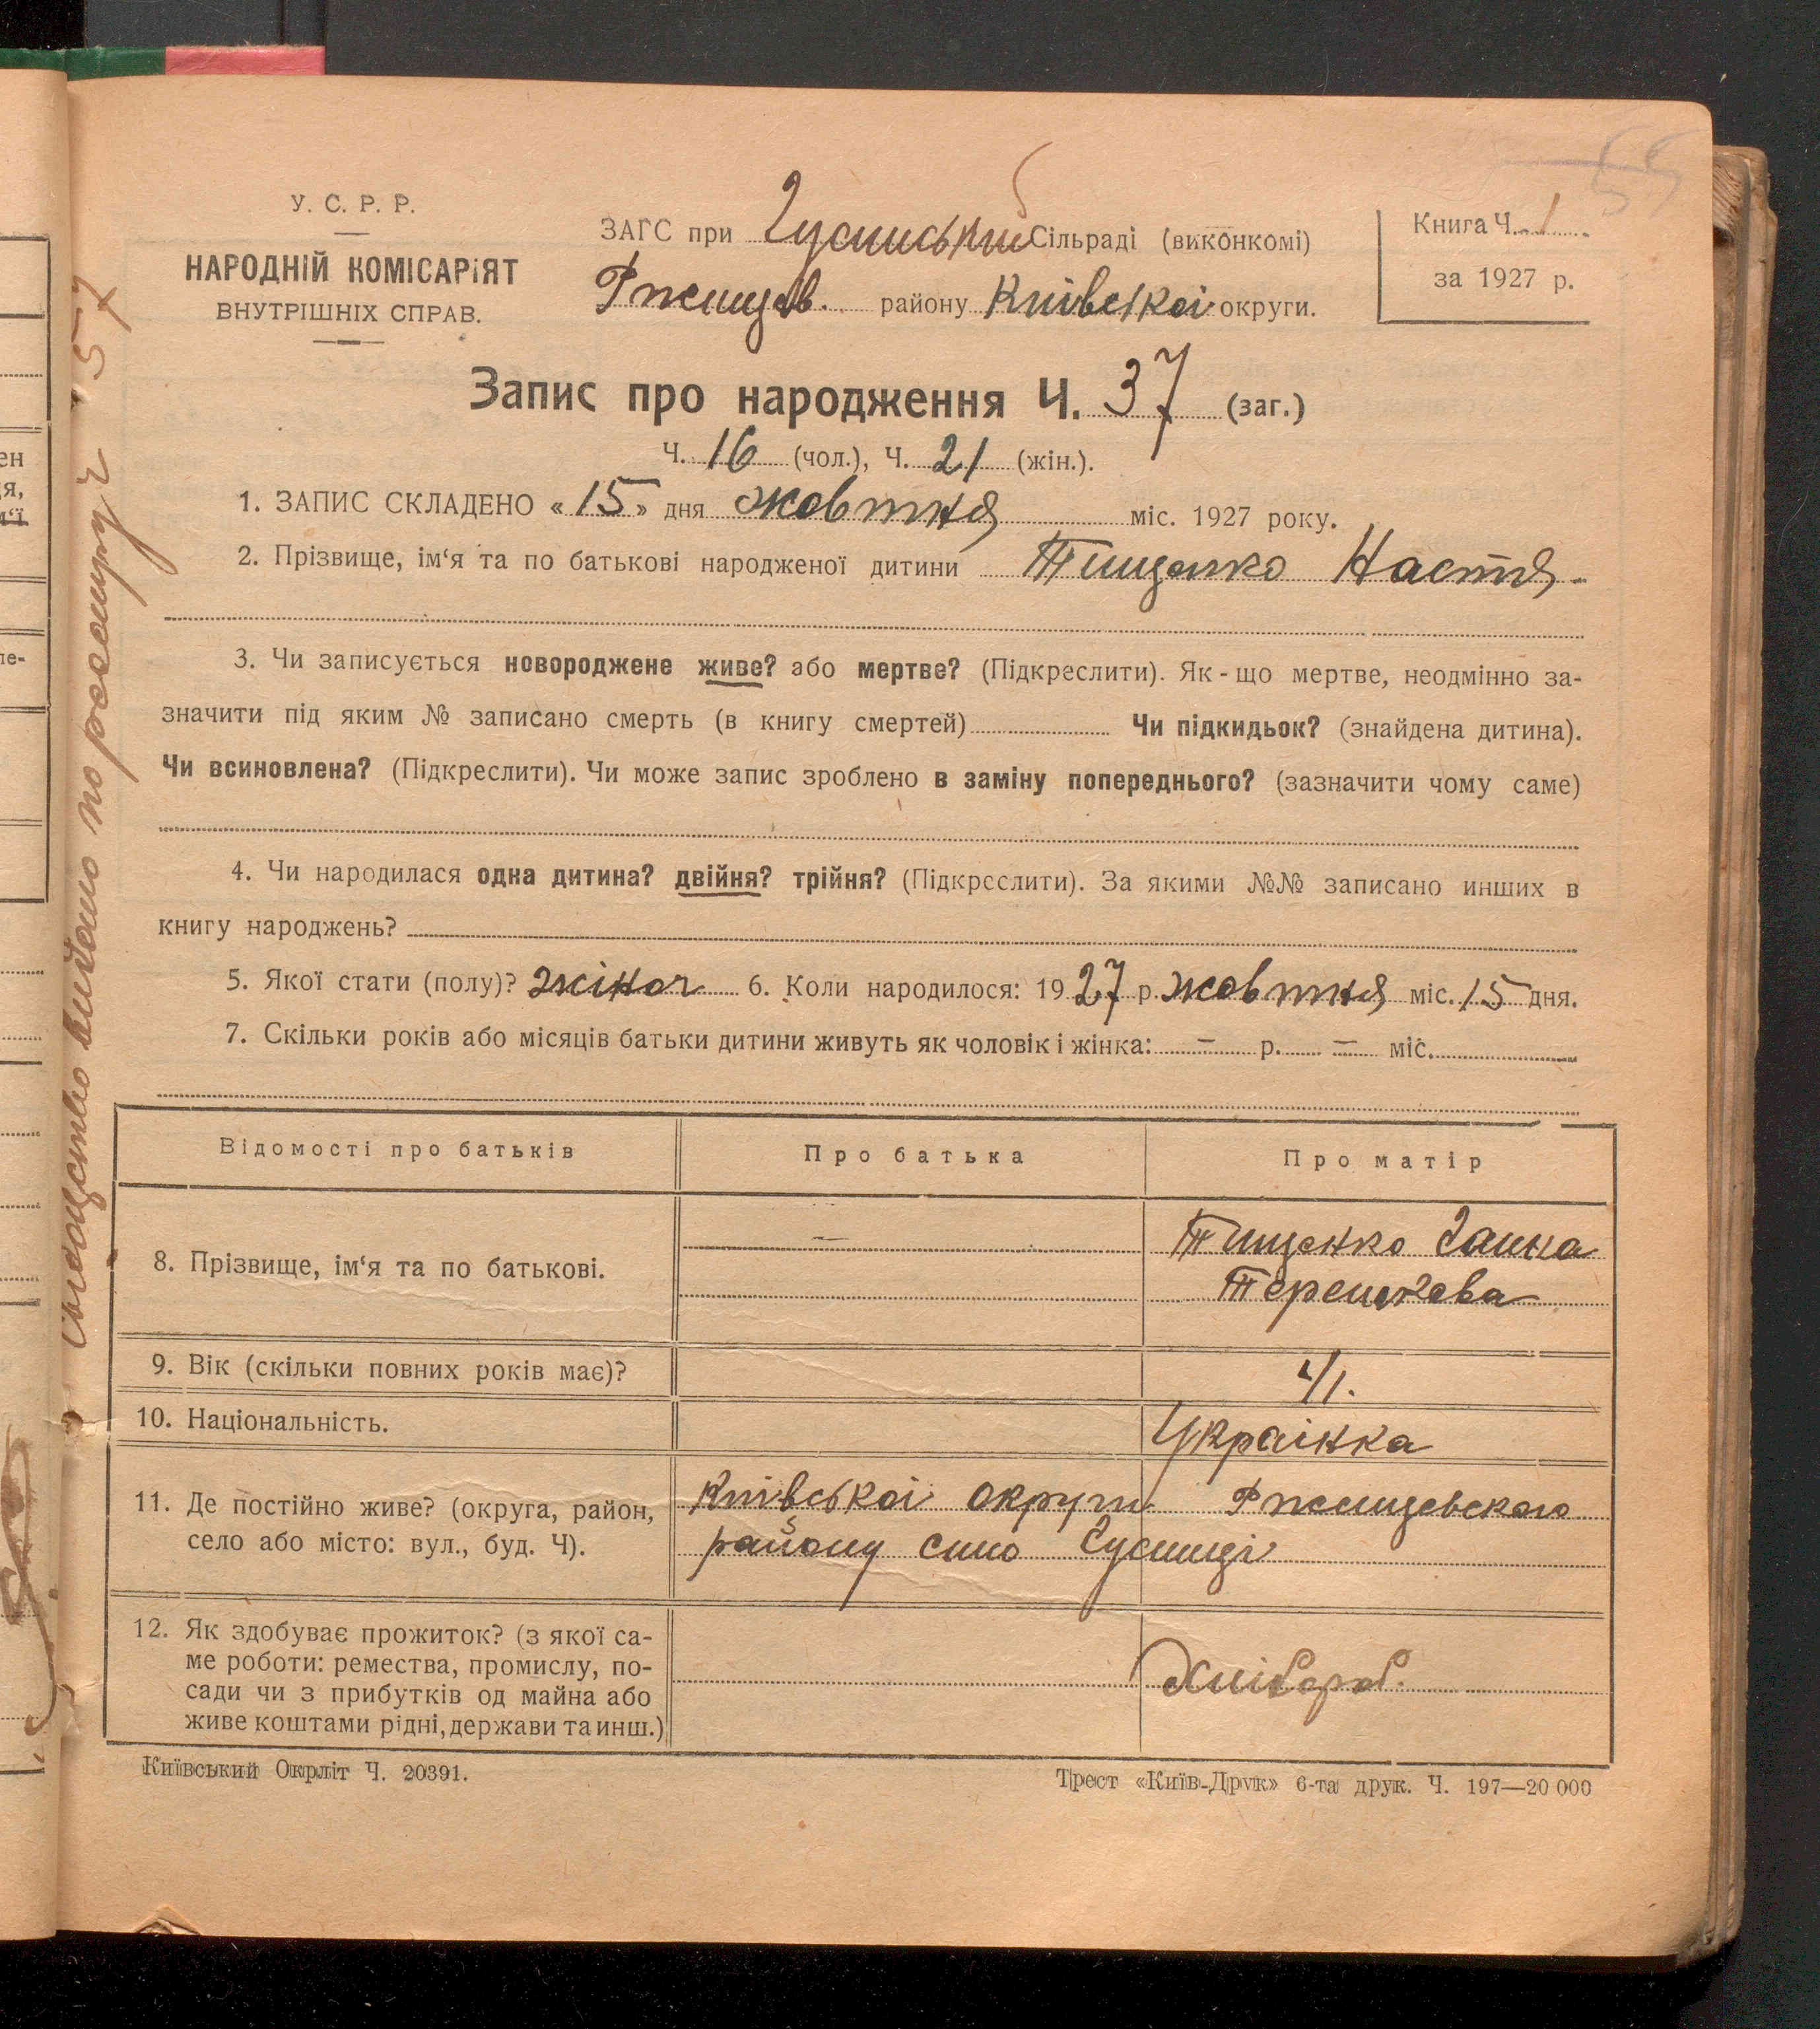 55
У. С. Р. Р.
НАРОДНІЙ КОМІСАРІЯТ
ВНУТРІШНІХ СПРАВ.
ЗАГС при Сільраді (виконкомі)
Ржищів. району Київської округи.
Книга Ч. 1
за 1927 р.
Запис про народження Ч. 37 (заг.)
Ч. 16 (чол.), Ч. 21 (жін.).
1. ЗАПИС СКЛАДЕНО « 15 » дня жовтня міс. 1927 року.
2. Прізвище, ім‘я та по батькові народженої дитини Тищенко Настя
3. Чи записується новороджене живе? або мертве? (Підкреслити). Як-що мертве, неодмінно за-
значити під яким № записано смерть (в книгу смертей) Чи підкидьок? (знайдена дитина).
Чи всиновлена? (Підкреслити). Чи може запис зроблено в заміну попереднього? (зазначити чому саме)
4. Чи народилася одна дитина? двійня? трійня? (Підкреслити). За якими №№ записано инших в
книгу народжень?
5. Якої стати (полу)? жіноч 6. Коли народилося: 19 27 р. жовтня міс. 15 дня.
7. Скільки років або місяців батьки дитини живуть як чоловік і жінка: — р. — міс.
Відомості про батьків Про батька Про матір
8. Прізвище, ім‘я та по батькові. — Тищенко Ганна
9. Вік (скільки повних років має)? 41.
10. Національність. Українка
11. Де постійно живе? (округа, район, Київської округи Ржищевского
село або місто: вул., буд. Ч). району село Гусинці
12. Як здобуває прожиток? (з якої са-
ме роботи: ремества, промислу, по-
сади чи з прибутків од майна або Хлібороб.
живе коштами рідні, держави та инш.)
Київський Окрліт Ч. 20391.
Трест «Київ-Друк» 6-та друк. Ч. 197—20 000
выдано по реестру 57